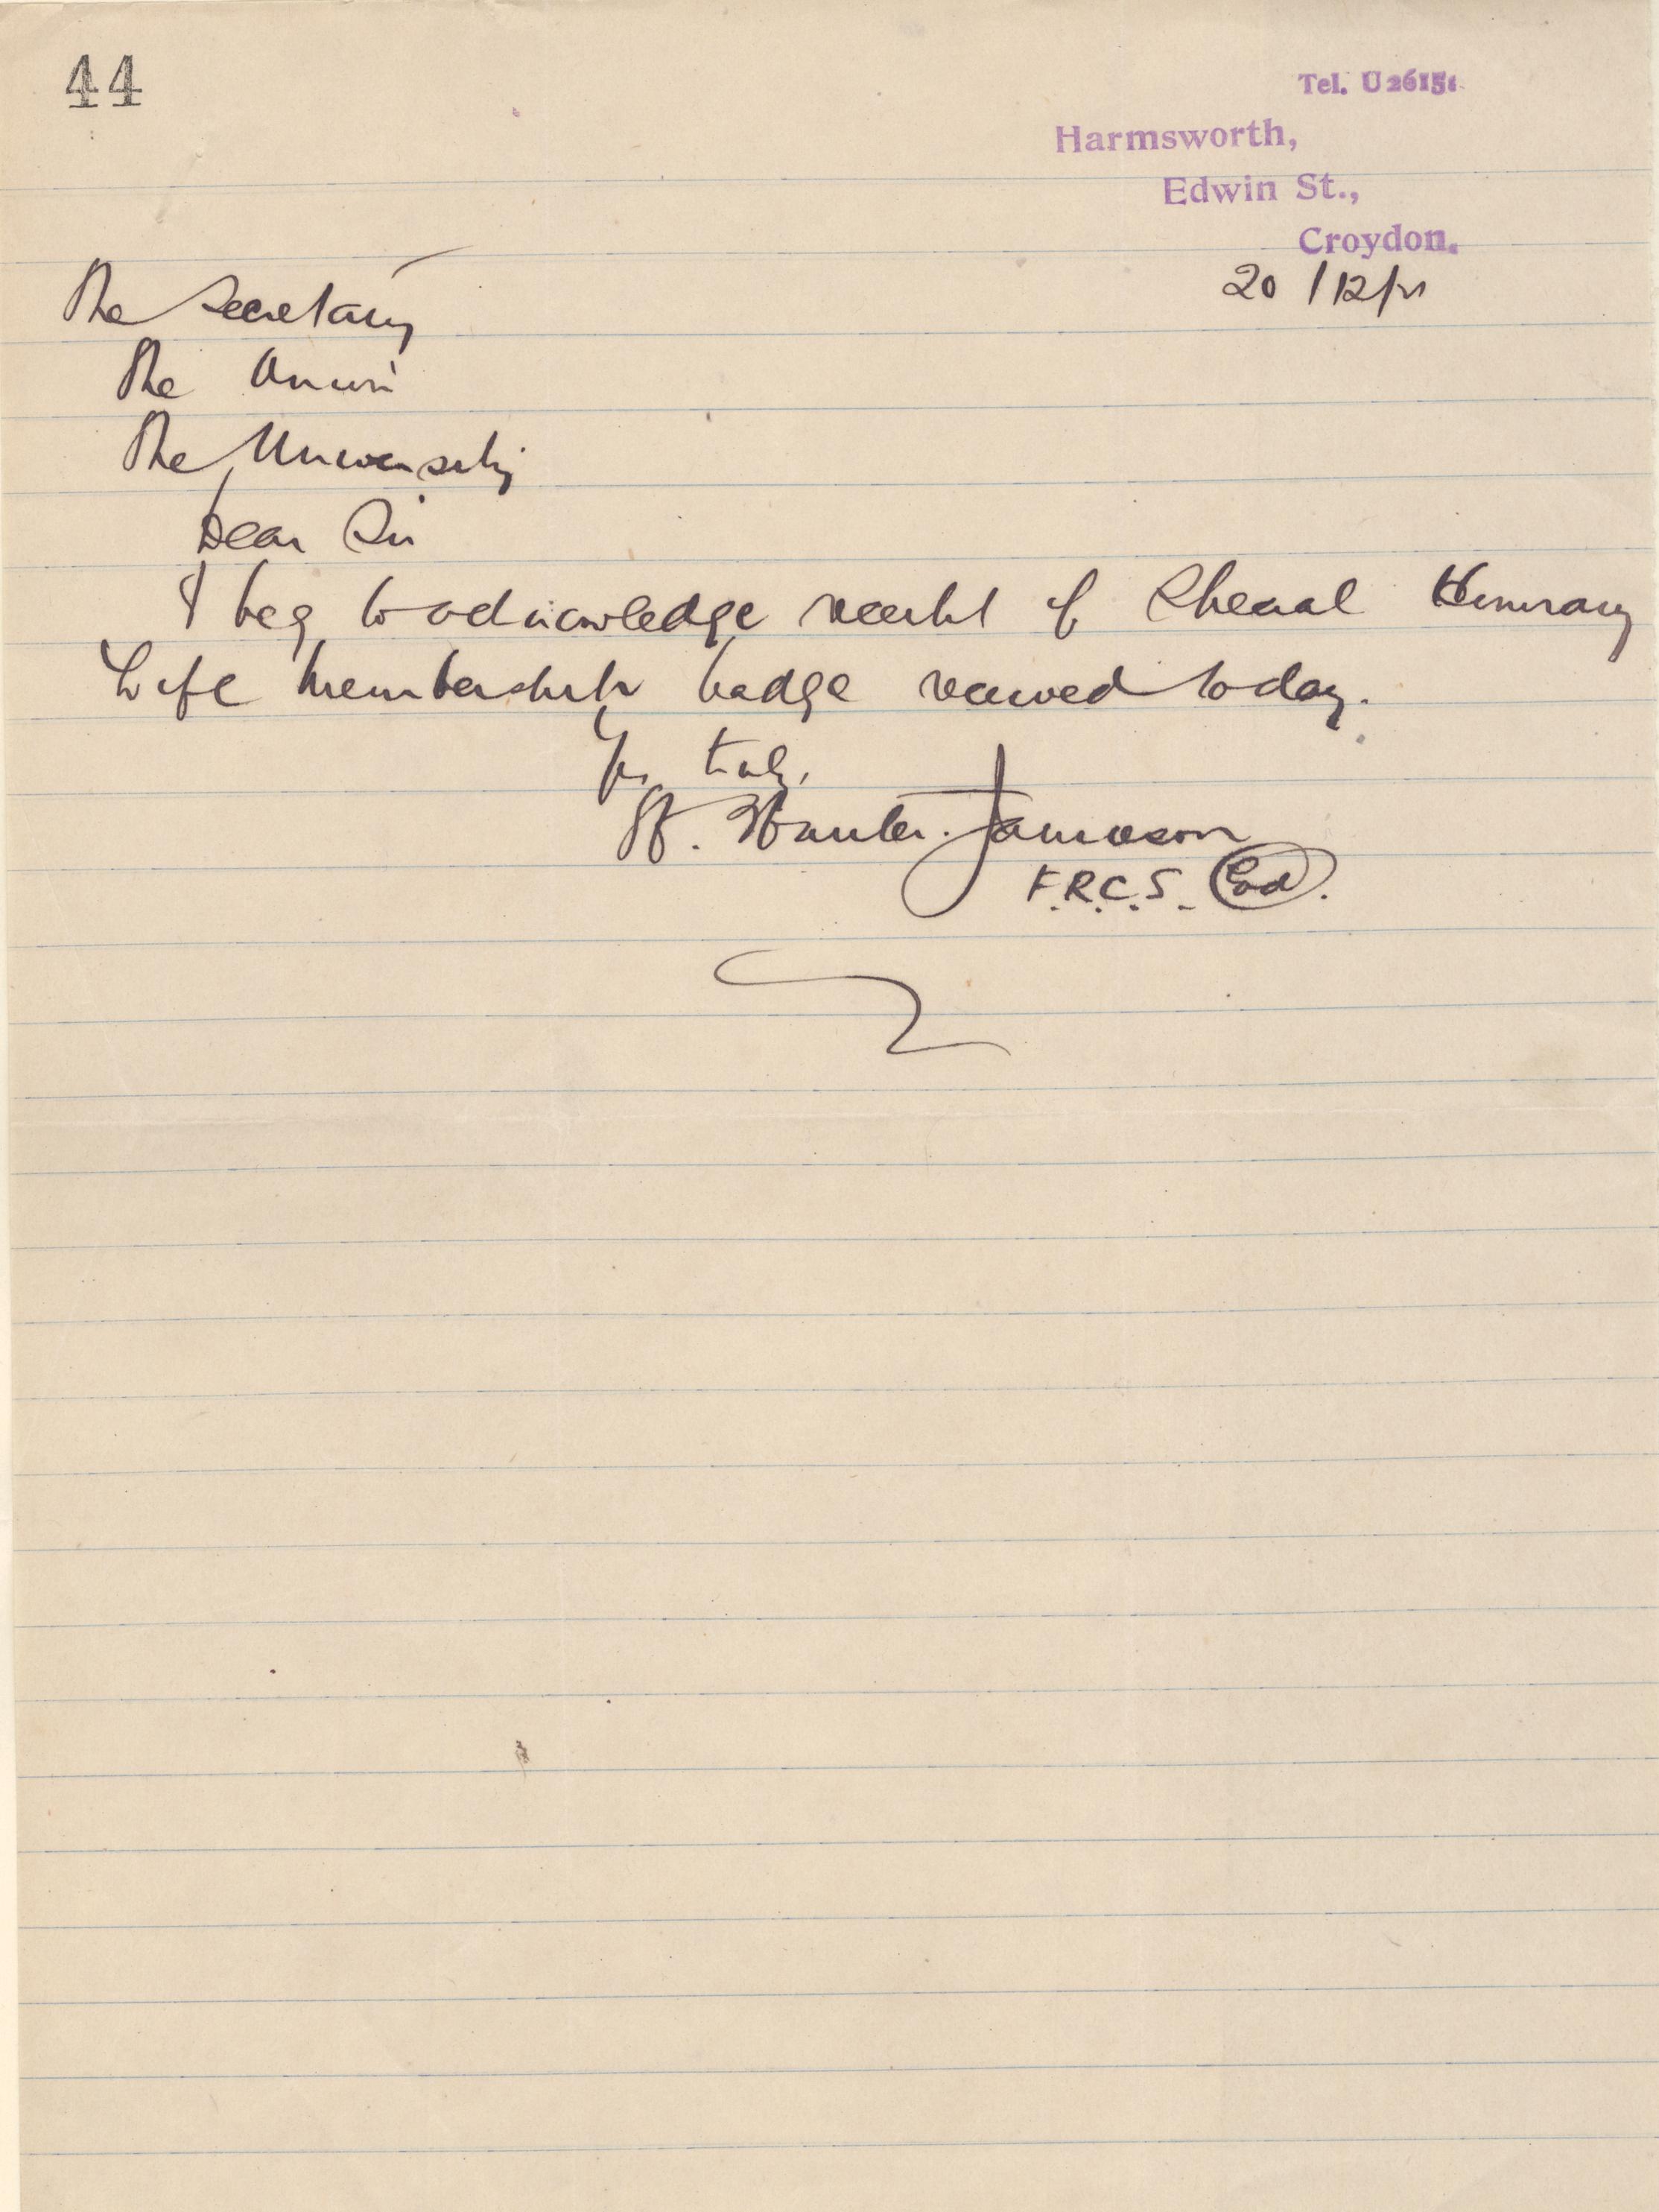 44
Tel. U2615
Harmsworth,
Edwin St.,
Croydon.
20/12/
The Secretary
The Union
The University
Dear Sir
I beg to acknowledge receipt of Special Honorary
Life membership badge received today.
Yrs truly,
W. Hunter. Jamieson
F.R.C.S. Ed.